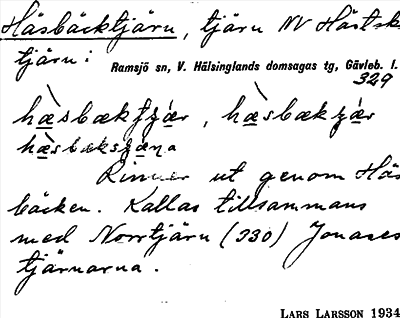 Håsbäcktjärn, tjärn NV Håstsk
tjärn:
Ramsjö sn, V. Hälsinglands domsagas tg, Gävleb. l.
329
Rinner ut genom Hås
bäcken. Kallas tillsammans
med Norrtjärn (330) Jonases
tjärnarna.
LARS LARSSON 1934